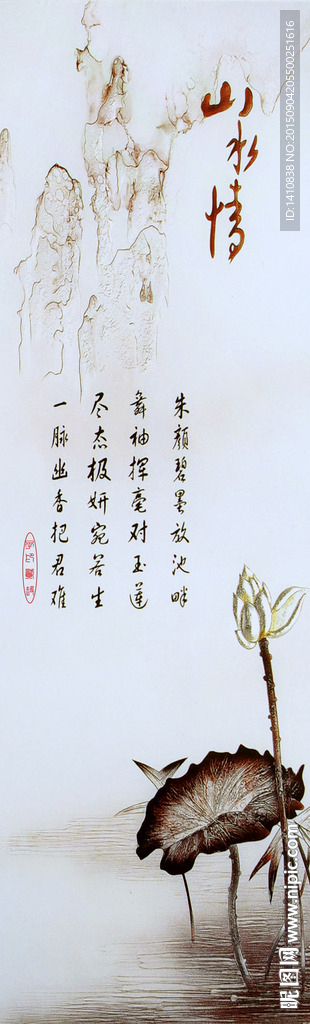 山水情
朱颜碧墨放池畔
舞袖挥毫对玉莲
尽态极妍宛若生
一脉幽香把君难
ID:1410838 NO:20150904205500251616
昵图网 www.nipic.com